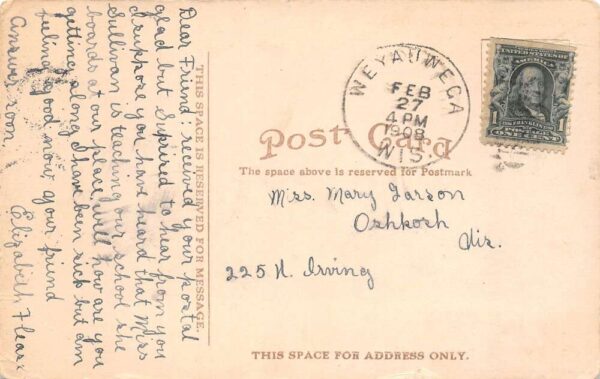 Dear Friend: received your postal
glad but Suprised to hear from you
I suppose you have heard that Miss
Sullivan is teaching our school she
boards at our place. well how are you
getting along I have been sick but am
feeling good now, your friend
Answer soon Elizabeth
THIS SPACE IS RESERVED FOR MESSAGE.
WEYAUWEGA
FEB
27
4 PM
1908
WIS.
UNITED STATES OF
AMERICA
FRANKLIN
POSTAGE
1 ONE CENT 1
Post Card
The space above is reserved for Postmark
Miss. Mary Larson
Oshkosh
Wis.
225 N. Irving
THIS SPACE FOR ADDRESS ONLY.